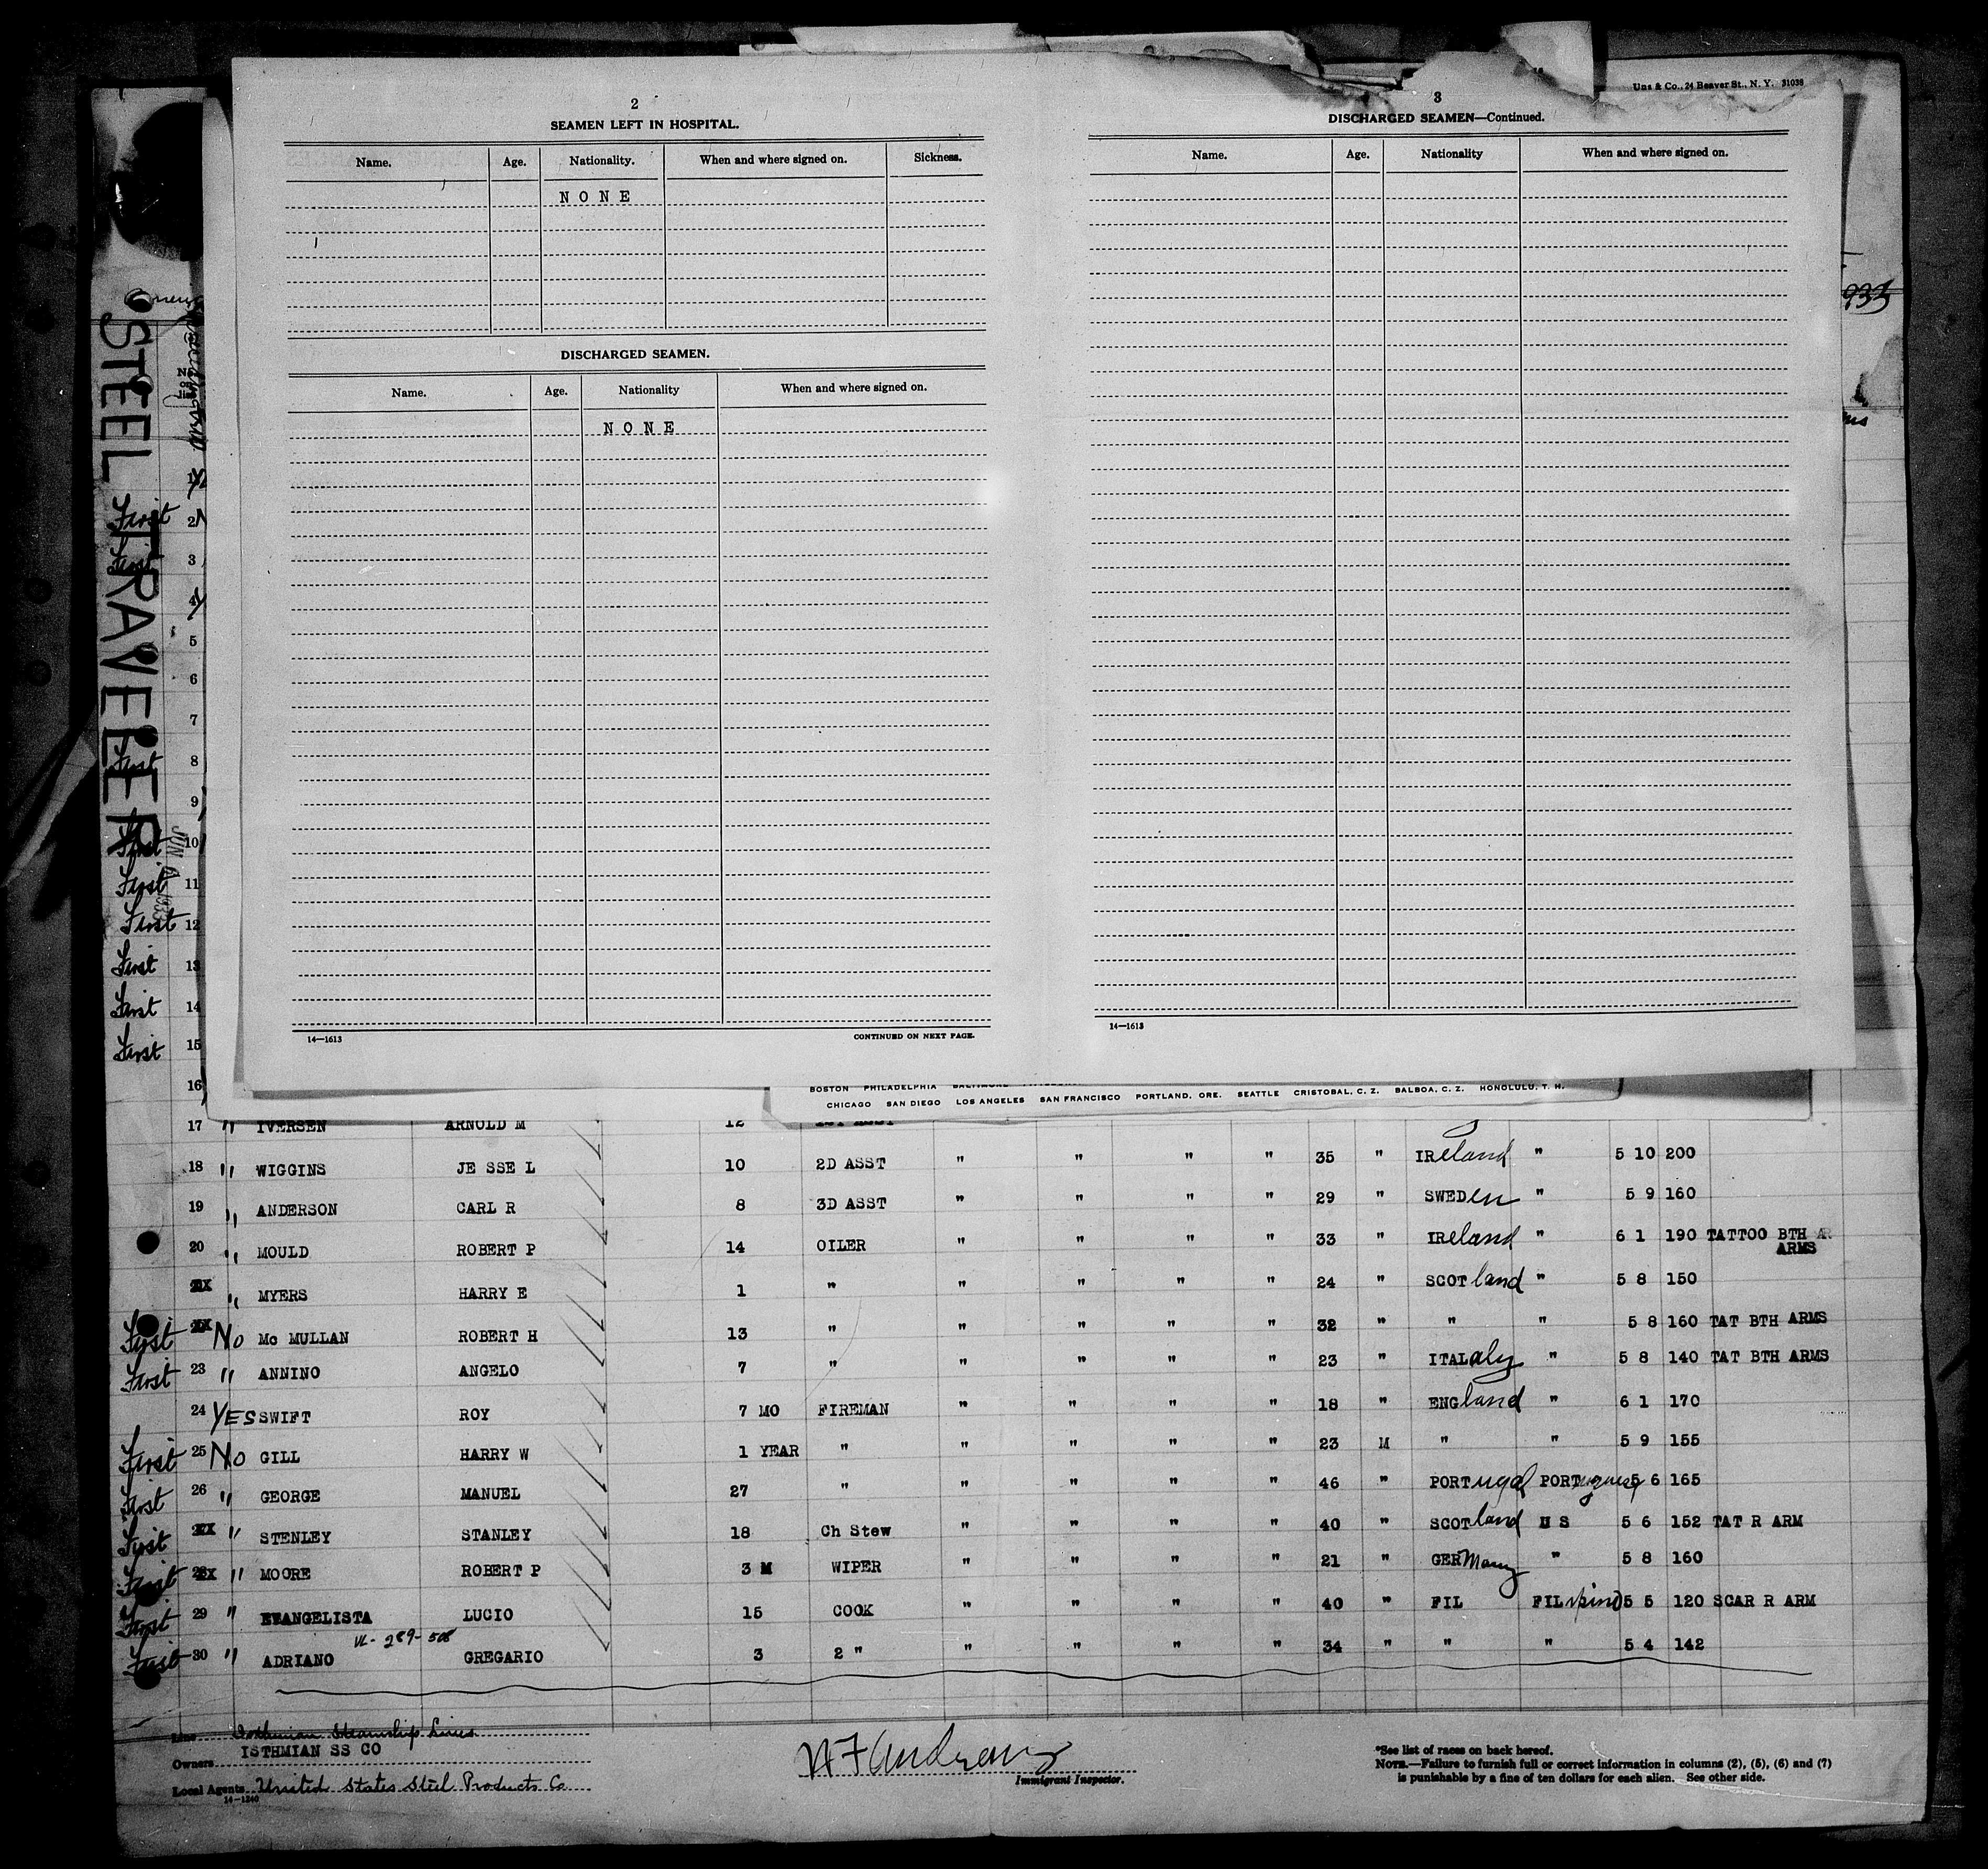 Uns & Co., 24 Beaver St., N. Y. 31038
2
SEAMEN LEFT IN HOSPITAL.
Name. Age. Nationality. When and where signed on. Sickness.
NONE
DISCHARGED SEAMEN.
Name. Age. Nationality When and where signed on.
NONE
14—1613 CONTINUED ON NEXT PAGE.
3
DISCHARGED SEAMEN—Continued.
Name. Age. Nationality When and where signed on.
14—1613
STEEL TRAVELER
First 2
First 3
4
5
6
7
First 8
9
First 10
First 11
First 12
First 13
First 14
First 15
16
BOSTON PHILADELPHIA BALTIMORE
CHICAGO SAN DIEGO LOS ANGELES SAN FRANCISCO PORTLAND, ORE. SEATTLE CRISTOBAL, C. Z. BALBOA, C. Z. HONOLULU, T. H.
17 " IVERSEN ARNOLD M 12 1ST ASST
18 " WIGGINS JE SSE L 10 2D ASST " " " " 35 " IReland " 5 10 200
19 " ANDERSON CARL R 8 3D ASST " " " " 29 " SWEDen " 5 9 160
20 " MOULD ROBERT P 14 OILER " " " " 33 " IReland " 6 1 190 TATTOO BTH AR
ARMS
" MYERS HARRY E 1 " " " " " 24 " SCOTland " 5 8 150
First No Mc MULLAN ROBERT H 13 " " " " " 32 " " " 5 8 160 TAT BTH ARMS
First 23 " ANNINO ANGELO 7 " " " " " 23 " ITALaly " 5 8 140 TAT BTH ARMS
24 YES SWIFT ROY 7 MO FIREMAN " " " " 18 " ENGland " 6 1 170
First 25 No GILL HARRY W 1 YEAR " " " " " 23 M " " 5 9 155
First 26 " GEORGE MANUEL 27 " " " " " 46 " PORTugal PORTuguese 5 6 165
First " STENLEY STANLEY 18 Ch Stew " " " " 40 " SCOTland U S 5 6 152 TAT R ARM
First " MOORE ROBERT P 3 M WIPER " " " " 21 " GERMany " 5 8 160
First 29 " EVANGELISTA LUCIO 15 COOK " " " " 40 " FIL FILipino 5 5 120 SCAR R ARM
First 30 " ADRIANO GREGARIO 3 2 " " " " " 34 " " " 5 4 142
Line Isthmian Steamship Lines
Owners ISTHMIAN SS CO
Local Agents United States Steel Products Co
14—1240
Immigrant Inspector.
*See list of races on back hereof.
NOTE.—Failure to furnish full or correct information in columns (2), (5), (6) and (7)
is punishable by a fine of ten dollars for each alien. See other side.